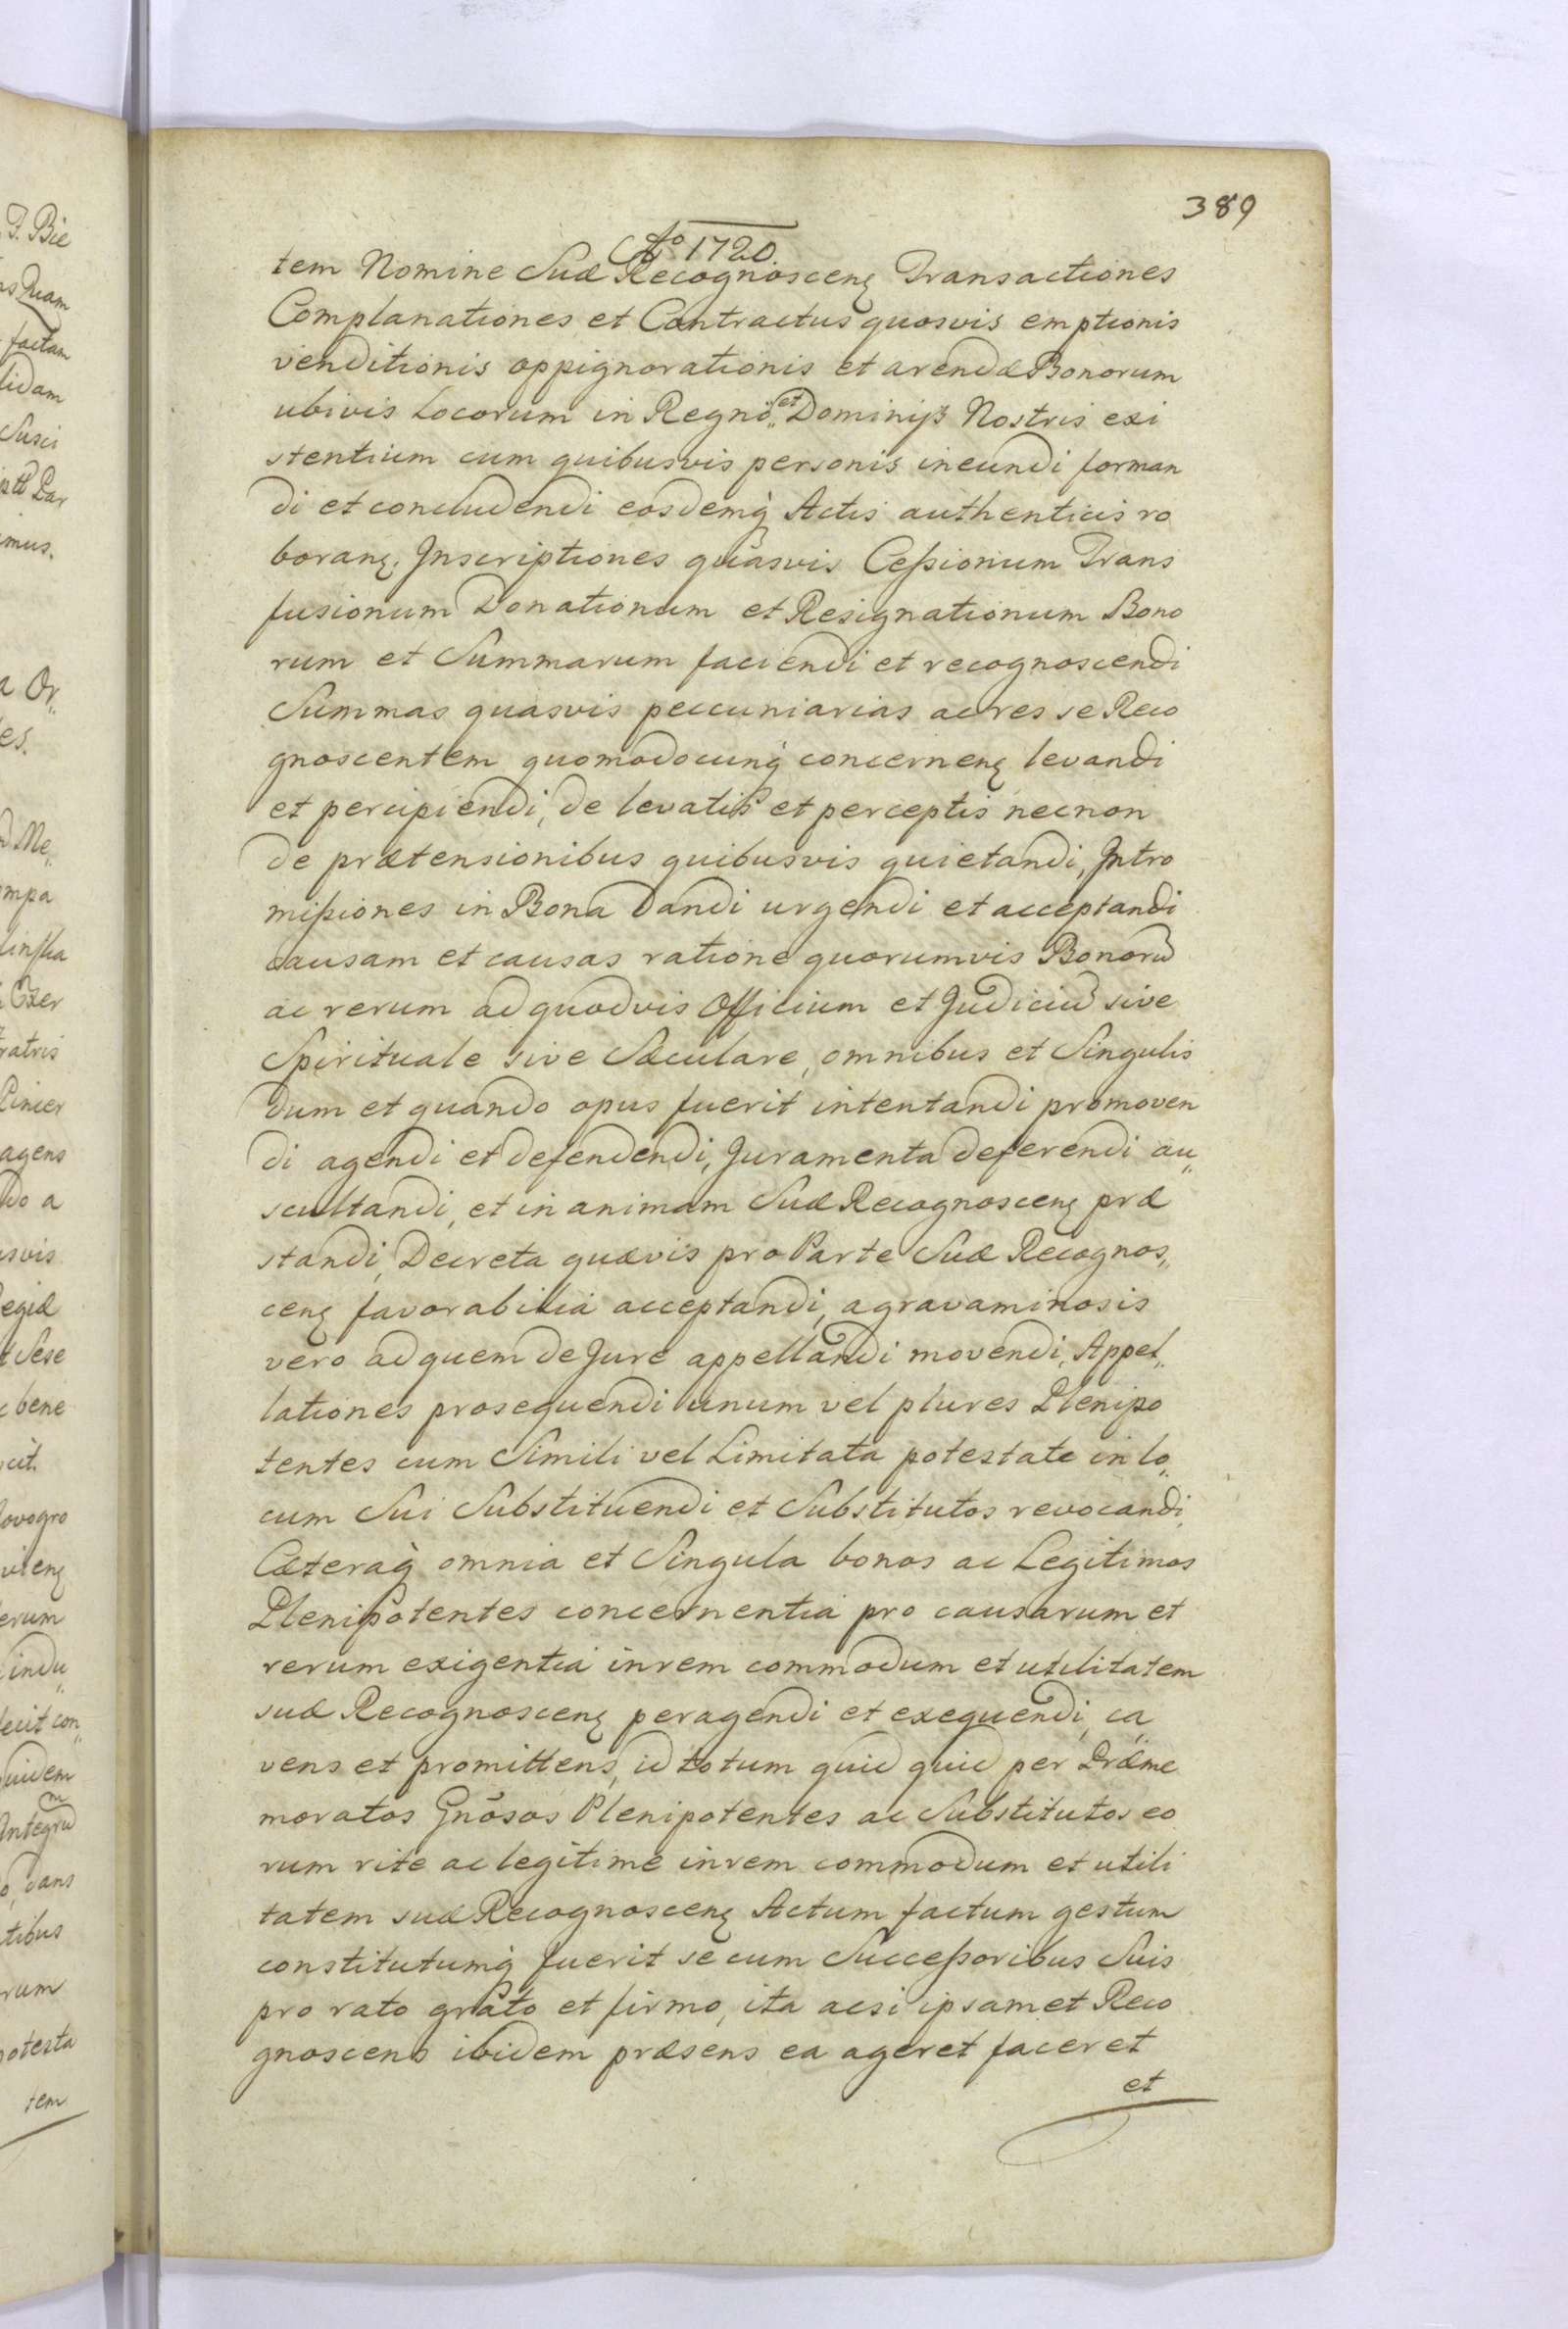 389
Aº 1720.
tem Nomine Suæ Recognoscenꝭ Transactiones
Complanationes et Contractus quosvis emptionis
venditionis oppignorationis et arendæ Bonorum
ubivis Locorum in Regno et Dominijs Nostris exi
stentium cum quibusvis personis ineundi forman
di et concludendi eosdemq̀ Actis authenticis ro
boranꝭ. Inscriptiones quasvis Cessionum Trans
fusionum Donationum et Resignationum Bono
rum et Summarum faciendi et recognoscendi
Summas quasvis peccuniarias ac res se Reco
gnoscentem quomodocunq̀ concernenꝭ levandi
et percipiendi, de levatis et perceptis necnon
de prætensionibus quibusvis quietandi, Intro
missiones in Bona dandi urgendi et acceptandi
causam et causas ratione quorumvis Bonorũ
ac rerum ad quodvis Officium et Judiciũ sive
Spirituale sive Sæculare, omnibus et Singulis
dum et quando opus fuerit intentandi promoven
di agendi et defendendi, Juramenta deferendi au„
scultandi, et in animam Suæ Recognoscenꝭ præ
standi, Decreta quævis pro Parte Suæ Recognos„
cenꝭ favorabilia acceptandi, agravaminosis
vero ad quem de Jure appellandi movendi, Appel„
lationes prosequendi unum vel plures Plenipo
tentes cum Simili vel Limitata potestate in lo„
cum Sui Substituendi et Substitutos revocandi,
Cæteraq̀ omnia et Singula bonos ac Legitimos
Plenipotentes concernentia pro causarum et
rerum exigentia in rem commodum et utilitatem
suæ Recognoscenꝭ peragendi et exequendi, ca
vens et promittens, id totum quid quid per Præme
moratos Gñosos Plenipotentes ac Substitutos eo
rum rite ac legitime in rem commodum et utili
tatem suæ Recognoscenꝭ Actum factum gestum
constitutumq̀ fuerit se cum Successoribus Suis
pro rato grato et firmo, ita acsi ipsamet Reco
gnoscens ibidem præsens ea ageret faceret
et